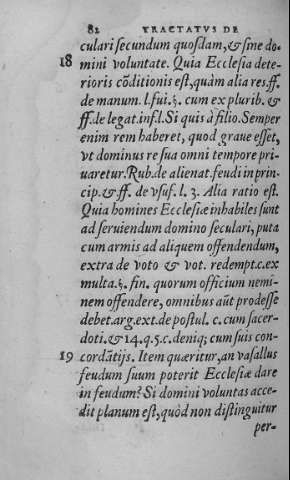 82 TRACTATVS DE
culari secundum quosdam, & sine do-
18 mini voluntate. Quia Ecclesia dete-
rioris cõditionis est, quàm alia res. ff.
de manum. l. fui. §. cum ex plurib. &
ff. de legat. inf. l. Si quis à filio. Semper
enim rem haberet, quod graue esset,
vt dominus re sua omni tempore pri-
uaretur. Rub. de alienat. feudi in prin-
cip. & ff. de vsuf. l. 3. Alia ratio est.
Quia homines Ecclesiæ inhabiles sunt
ad seruiendum domino seculari, puta
cum armis ad aliquem offendendum,
extra de voto & vot. redempt. c. ex
multa. §. fin. quorum officium nemi-
nem offendere, omnibus aũt prodesse
debet. arg. ext. de postul. c. cum sacer-
dot. & 14. q. 5. c. deniq; cum suis con-
19 cordãtijs. Item quæritur, an vasallus
feudum suum poterit Ecclesiæ dare
in feudum? Si domini voluntas acce-
dit planum est, quòd non distinguitur
per-